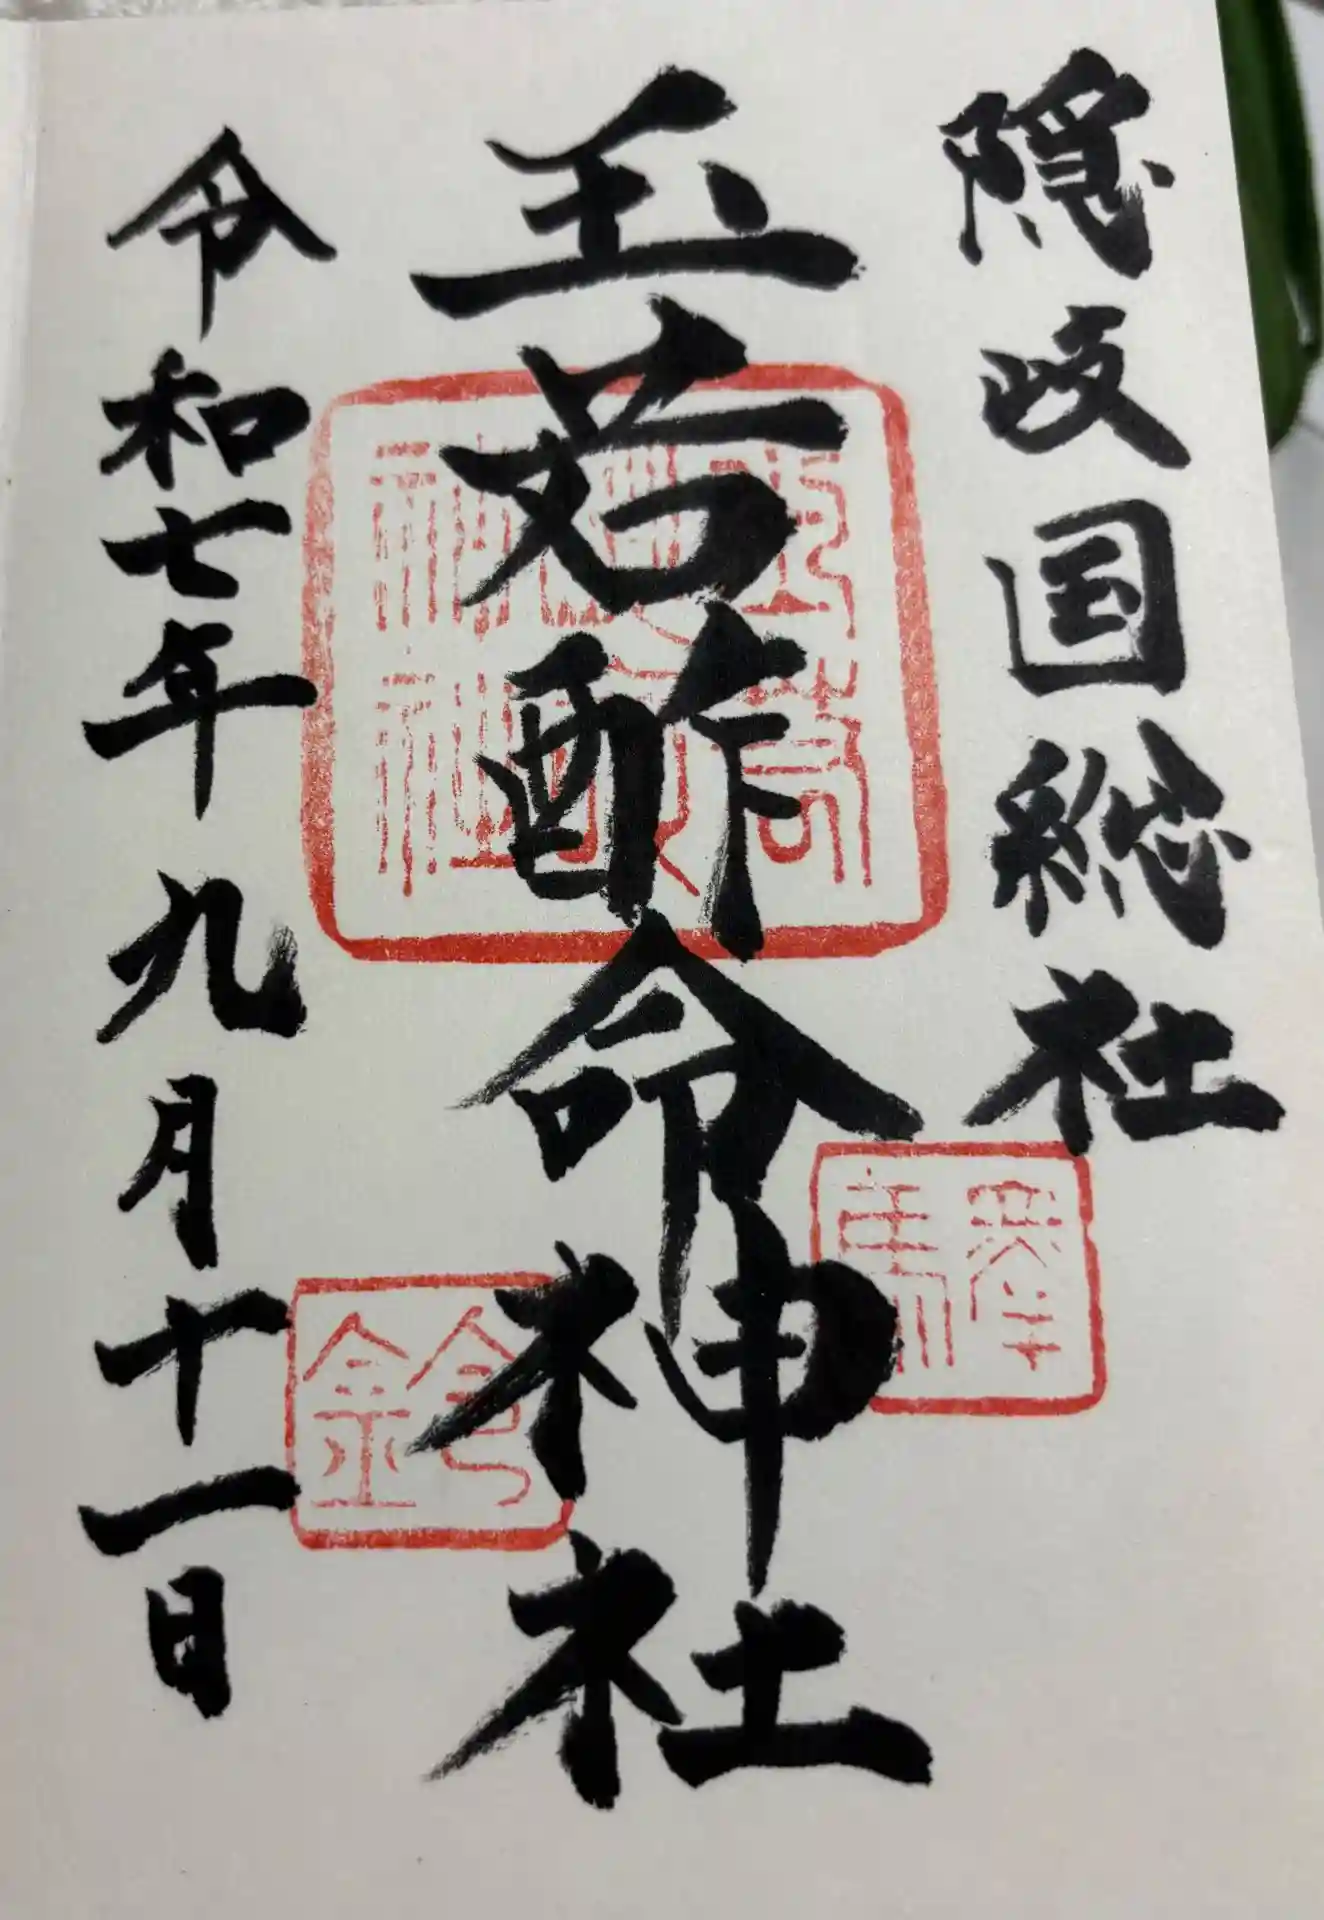 隠岐国総社
玉若酢命神社
令和七年九月十一日
驛鈴